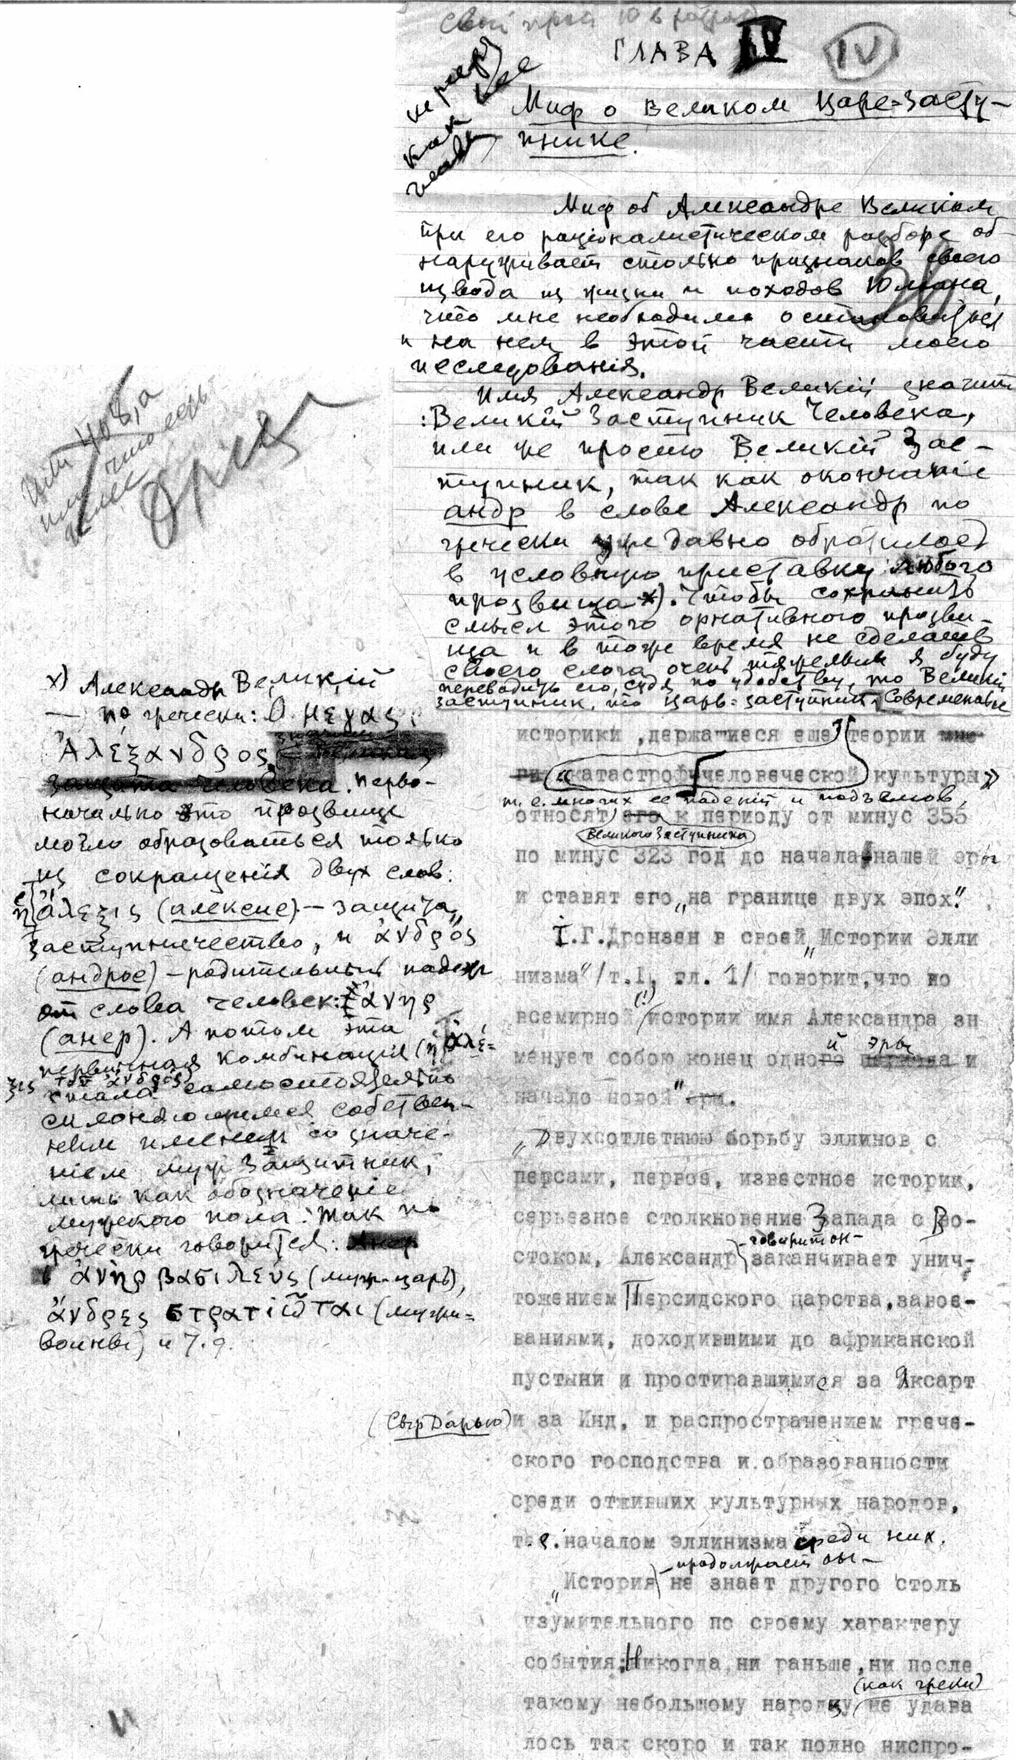 свой
ГЛАВА IV IV
как все
Миф о Великом Царе-Засту-
пнике.
Миф об Александре Великом
при его раціоналистическом разборе об-
наруживает столько признаков своего
извода из жизни и походов Юлиана,
что мне необходимо остановиться
и на нем в этой части моего
исследованія.
Имя Александр Великій значит
: Великій Заступник Человека,
или же просто Великій Зас-
тупник, так как окончаніе
андр в слове Александр по
гречески уже давно обратилось
в условную приставку любого
прозвища х). Чтобы сохранить
смысл этого орнативного прозви-
ща и в тоже время не сделать
своего слога очень тяжелым я буду
переводить его, судя по удобству, то Великій
заступник, то Царь-заступник. Современные
историки, держащиеся еще теории
"катастроф человеческой культуры"
т.е. многих ее паденій и подъемов,
относят его к периоду от минус 355
Великого Заступника
по минус 323 год до начала нашей эры
и ставят его "на границе двух эпох".
І.Г.Дройзен в своей "Истории Элли
низма" /т.1, гл. 1/ говорит, что во
всемирной (!) истории имя Александра зн
менует собою конец одной эры и
начало новой".
"Двухсотлетнюю борьбу эллинов с
персами, первое, известное истории,
серьезное столкновение Запада с Во-
стоком, Александр -говорит он- заканчивает унич-
тожением Персидского царства, завое-
ваниями, доходившими до африканской
пустыни и простиравшимися за Яксарт
(Сыр Дарью) и за Инд, и распространением грече-
ского господства и образованности
среди отживших культурных народов,
т.е. началом эллинизма среди них.
"История -продолжает он- не знает другого столь
изумительного по своему характеру
события: Никогда, ни раньше, ни после
такому небольшому народцу (как греки) не удава
лось так скоро и так полно ниспро-
408, а
х) Александр Великій
— по гречески: Ὁ μέγας
Ἀλέξανδρος,
защита человека. Перво-
начально это прозвище
могло образоваться только
из сокращенія двух слов:
ἡ ἄλεξις (алексис) — защита,
заступничество, и ἀνδρός
(андрос) — родительный падеж
от слова человек: ἀνήρ
(анер). А потом эта
первичная комбинація (ἡ ἄλέ-
ξις τοῦ ἀνδρός)
стала самостоятельно
склоняющимся собствен-
ным именем со значе-
ніем муж Защитник,
лишь как обозначеніе
мужского пола: так по
гречески говорится:
ἀνὴρ βασιλεύς (муж-царь),
ἄνδρες στρατιῶται (мужи-
воины) и т.д.